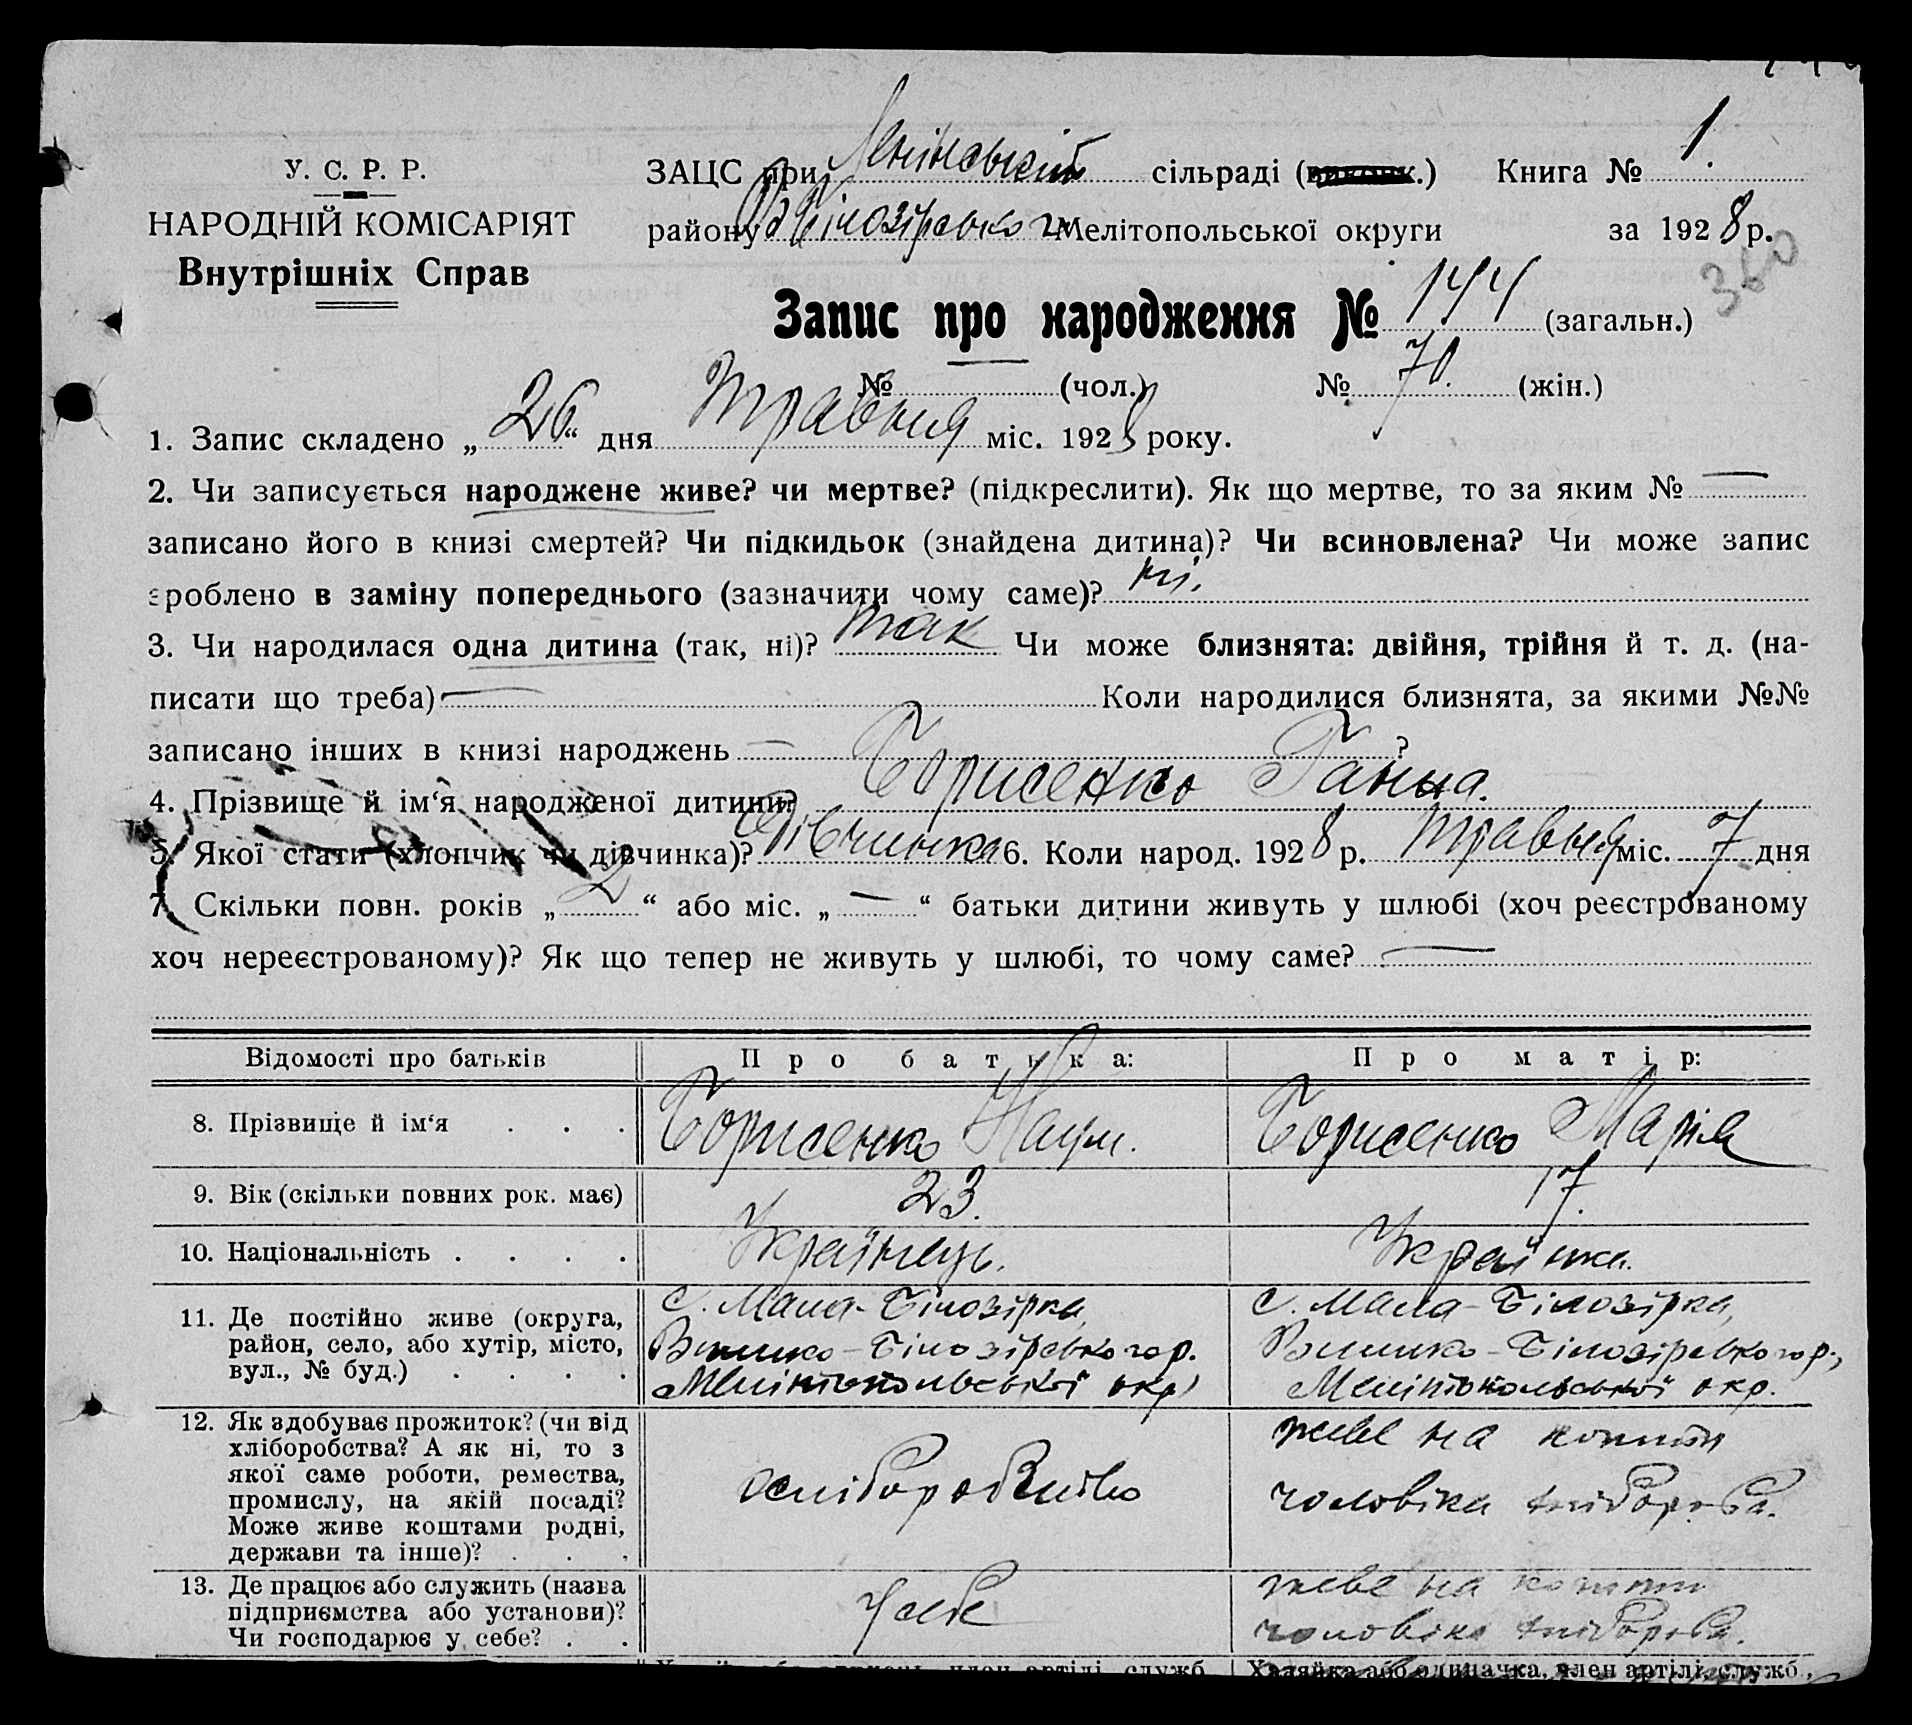 У. С. Р. Р.
НАРОДНІЙ КОМІСАРІЯТ
Внутрішніх Справ
ЗАЦС при Ленінській сільраді (виконк.) Книга № 1.
району В Білозірсько го Мелітопольської округи за 1928 р.
360
Запис про народження № 144 (загальн.)
№ (чол.) № 70. (жін.)
1. Запис складено „ 26 “ дня Травня міс. 1928 року.
2. Чи записується народжене живе? чи мертве? (підкреслити). Як що мертве, то за яким № —
записано його в книзі смертей? Чи підкидьок (знайдена дитина)? Чи всиновлена? Чи може запис
зроблено в заміну попереднього (зазначити чому саме)? ні.
3. Чи народилася одна дитина (так, ні)? так Чи може близнята: двійня, трійня й т. д. (на-
писати що треба) — Коли народилися близнята, за якими №№
записано інших в книзі народжень — ?
4. Прізвище й ім‘я народженої дитини? Борисенко Ганна.
5. Якої стати (хлопчик чи дівчинка)? Дівчинка 6. Коли народ. 1928 р. Травня міс. 7 дня
7. Скільки повн. років „ 2 “ або міс. „ — “ батьки дитини живуть у шлюбі (хоч реєстрованому
хоч нереєстрованому)? Як що тепер не живуть у шлюбі, то чому саме? —
Відомості про батьків Про батька: Про матір:
8. Прізвище й ім‘я . . . Борисенко Наум. Борисенко Марія
9. Вік (скільки повних рок. має) 23. 17.
10. Національність . . . . Українець. Українка.
11. Де постійно живе (округа,
район, село, або хутір, місто,
вул., № буд.) . . . .
с. Мала-Білозірка,
Велико-Білозірського р.
Мелітопольської окр.
с. Мала-Білозірка,
Велико-Білозірського р.,
Мелітопольської окр.
12. Як здобуває прожиток? (чи від
хліборобства? А як ні, то з
якої саме роботи, ремества,
промислу, на якій посаді?
Може живе коштами родні,
держави та інше)? . . .
хліборобство
живе на кошти
чоловіка хлібороба.
13. Де працює або служить (назва
підприємства або установи)?
Чи господарює у себе? . .
У себе
живе на кошти
чоловіка хлібороба.
Хазяйка або одиначка, член артілі, служб.,